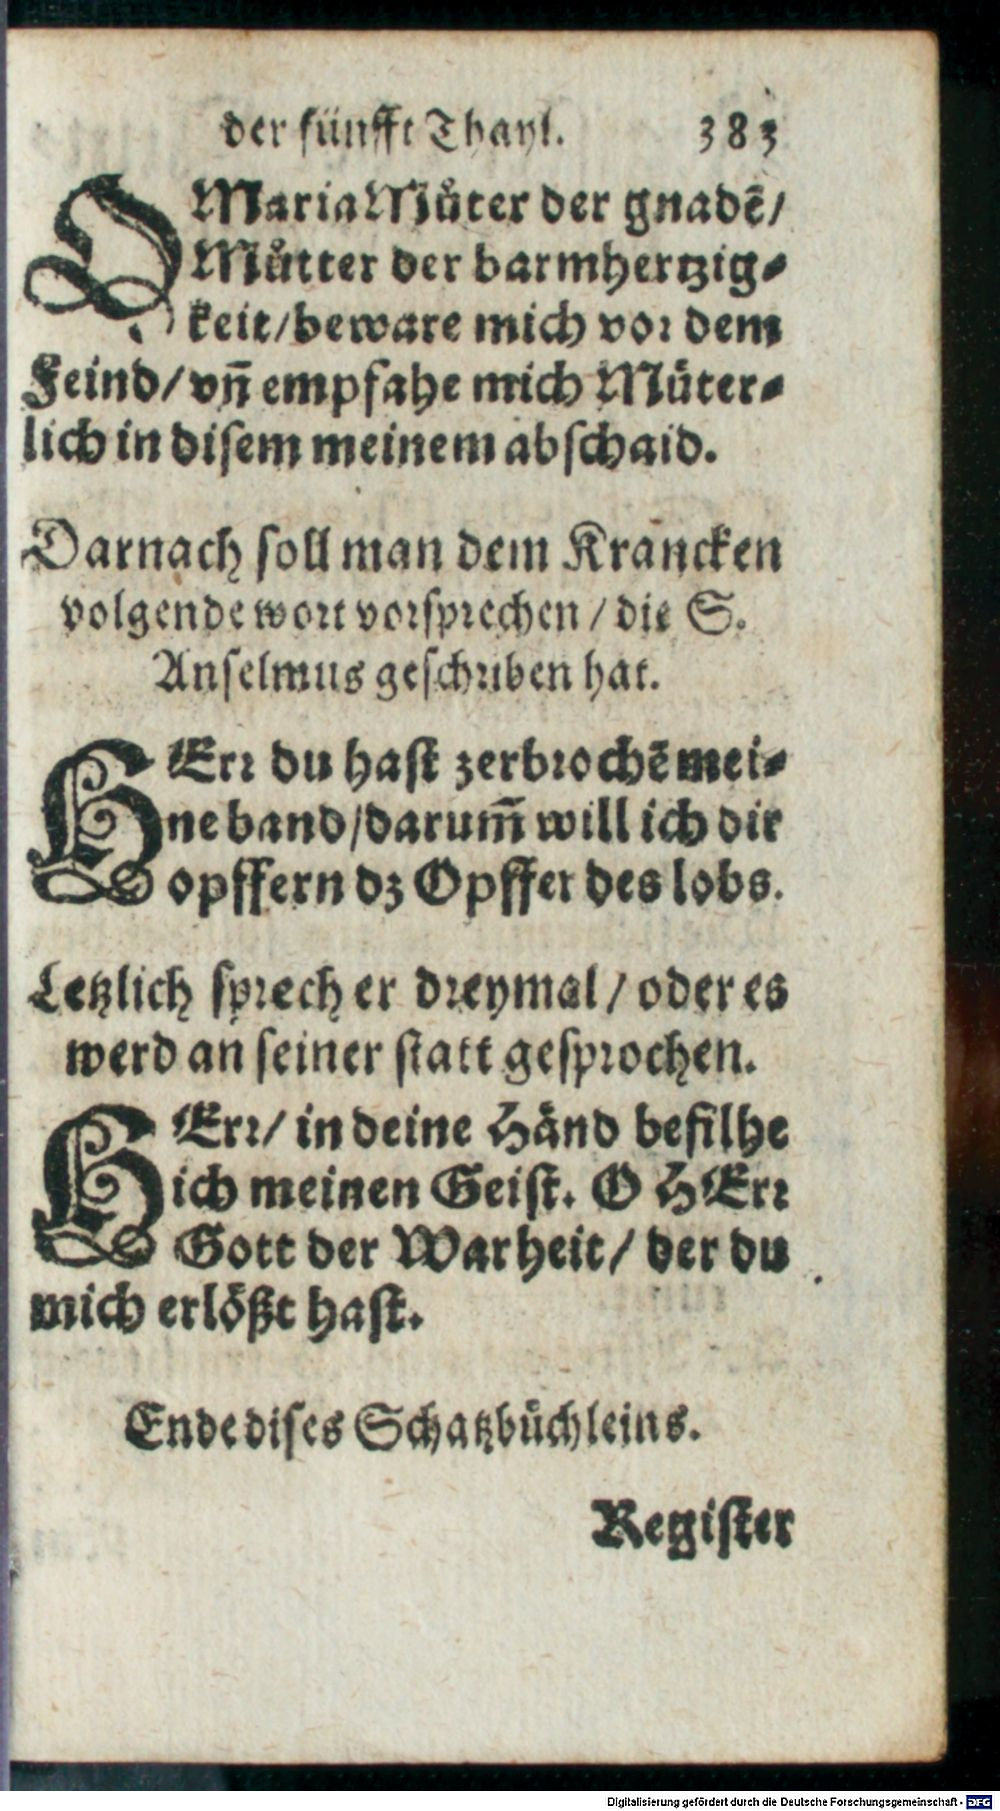 der fünfft Thayl. 383
O Maria Můter der gnadē/
Můtter der barmhertzig⸗
keit/beware mich vor dem
Feind/vñ empfahe mich Můter⸗
lich in disem meinem abschaid.
Darnach soll man dem Krancken
volgende wort vorsprechen / die S.
Anselmus geschriben hat.
HErr du hast zerbrochē mei⸗
ne band/darum̄ will ich dir
opffern dz Opffer des lobs.
Letzlich sprech er dreymal / oder es
werd an seiner statt gesprochen.
HErr/ in deine Händ befilhe
ich meinen Geist. O HErr
Gott der Warheit/ der du
mich erlößt hast.
Ende dises Schatzbůchleins.
Register
Digitalisierung gefördert durch die Deutsche Forschungsgemeinschaft - DFG